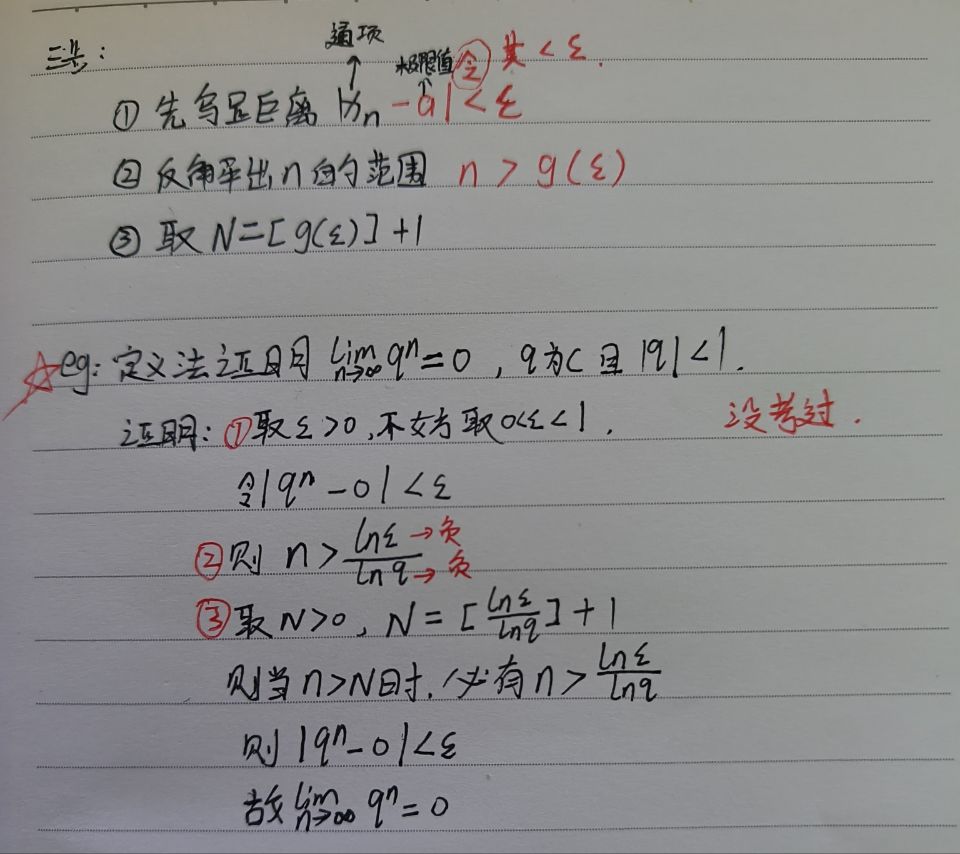 三步：
通项
极限值 令 其<ε.
① 先写距离 |xn -a|<ε
② 反解出n的范围 n>g(ε)
③ 取N=[g(ε)]+1
☆eg: 定义法证明 lim n→∞ qⁿ=0 , q为C且|q|<1.
证明: ①取ε>0,不妨取0<ε<1. 没考过.
令|qⁿ-0|<ε
②则 n> lnε/lnq →负 →负
③取N>0, N=[lnε/lnq]+1
则当n>N时,必有n> lnε/lnq
则|qⁿ-0|<ε
故 lim n→∞ qⁿ=0